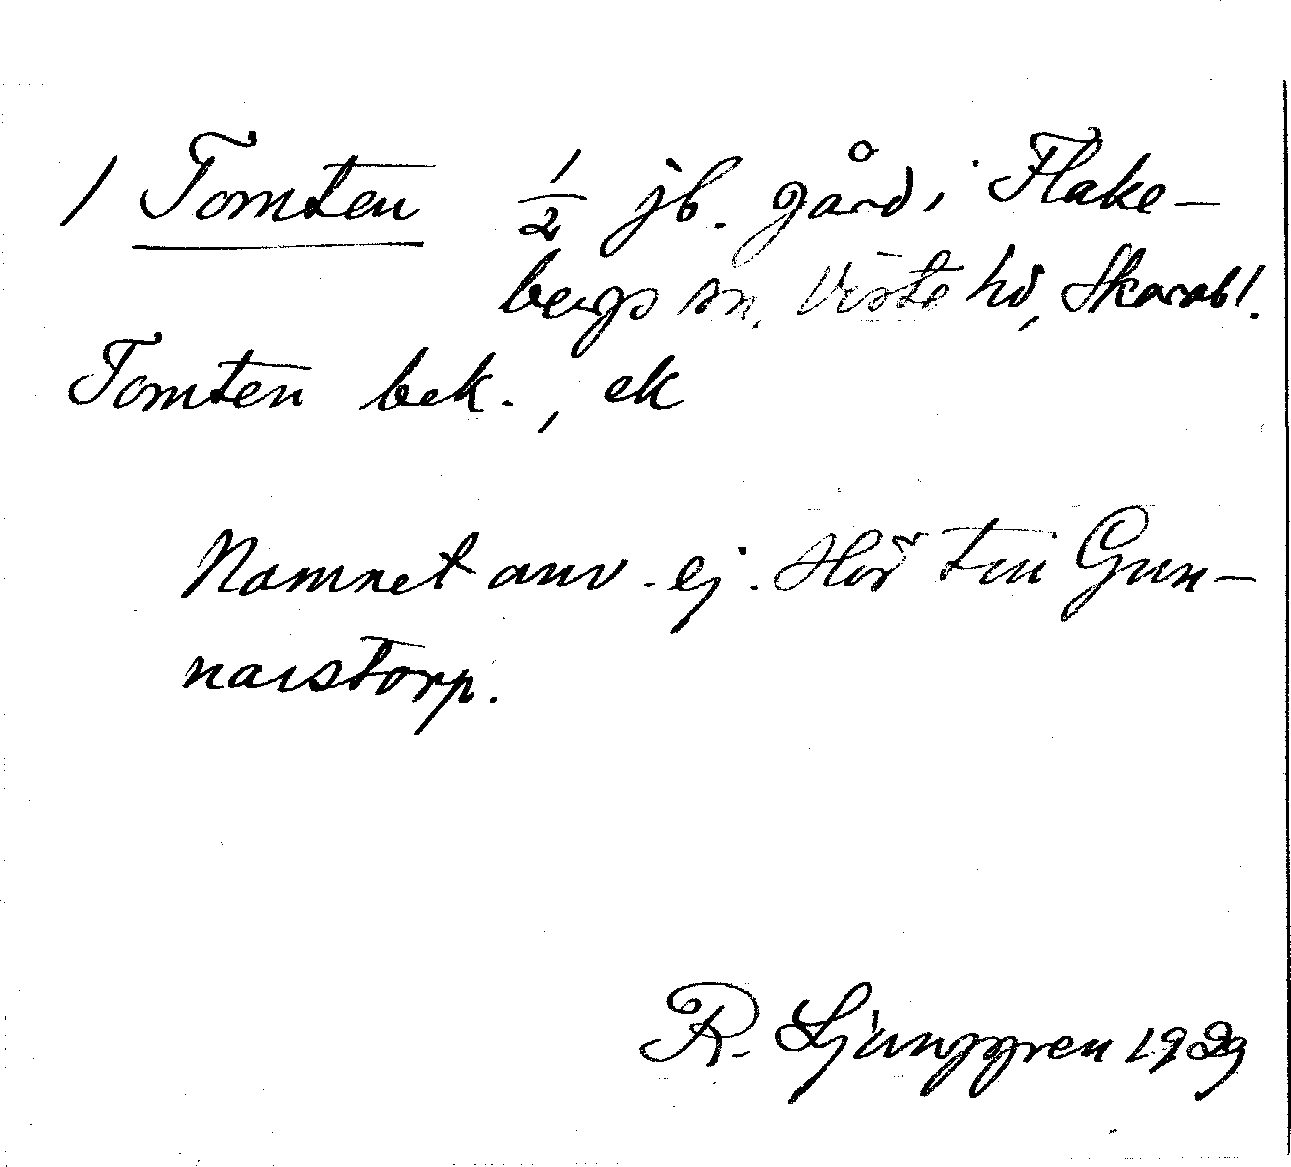 / Tomten ½ jb. gård i Flake-
bergs sn. Viste hd, Skarabl.
Tomten bek., ek
Namnet anv. ej. Hör till Gun-
narstorp.
R. Ljunggren 1929